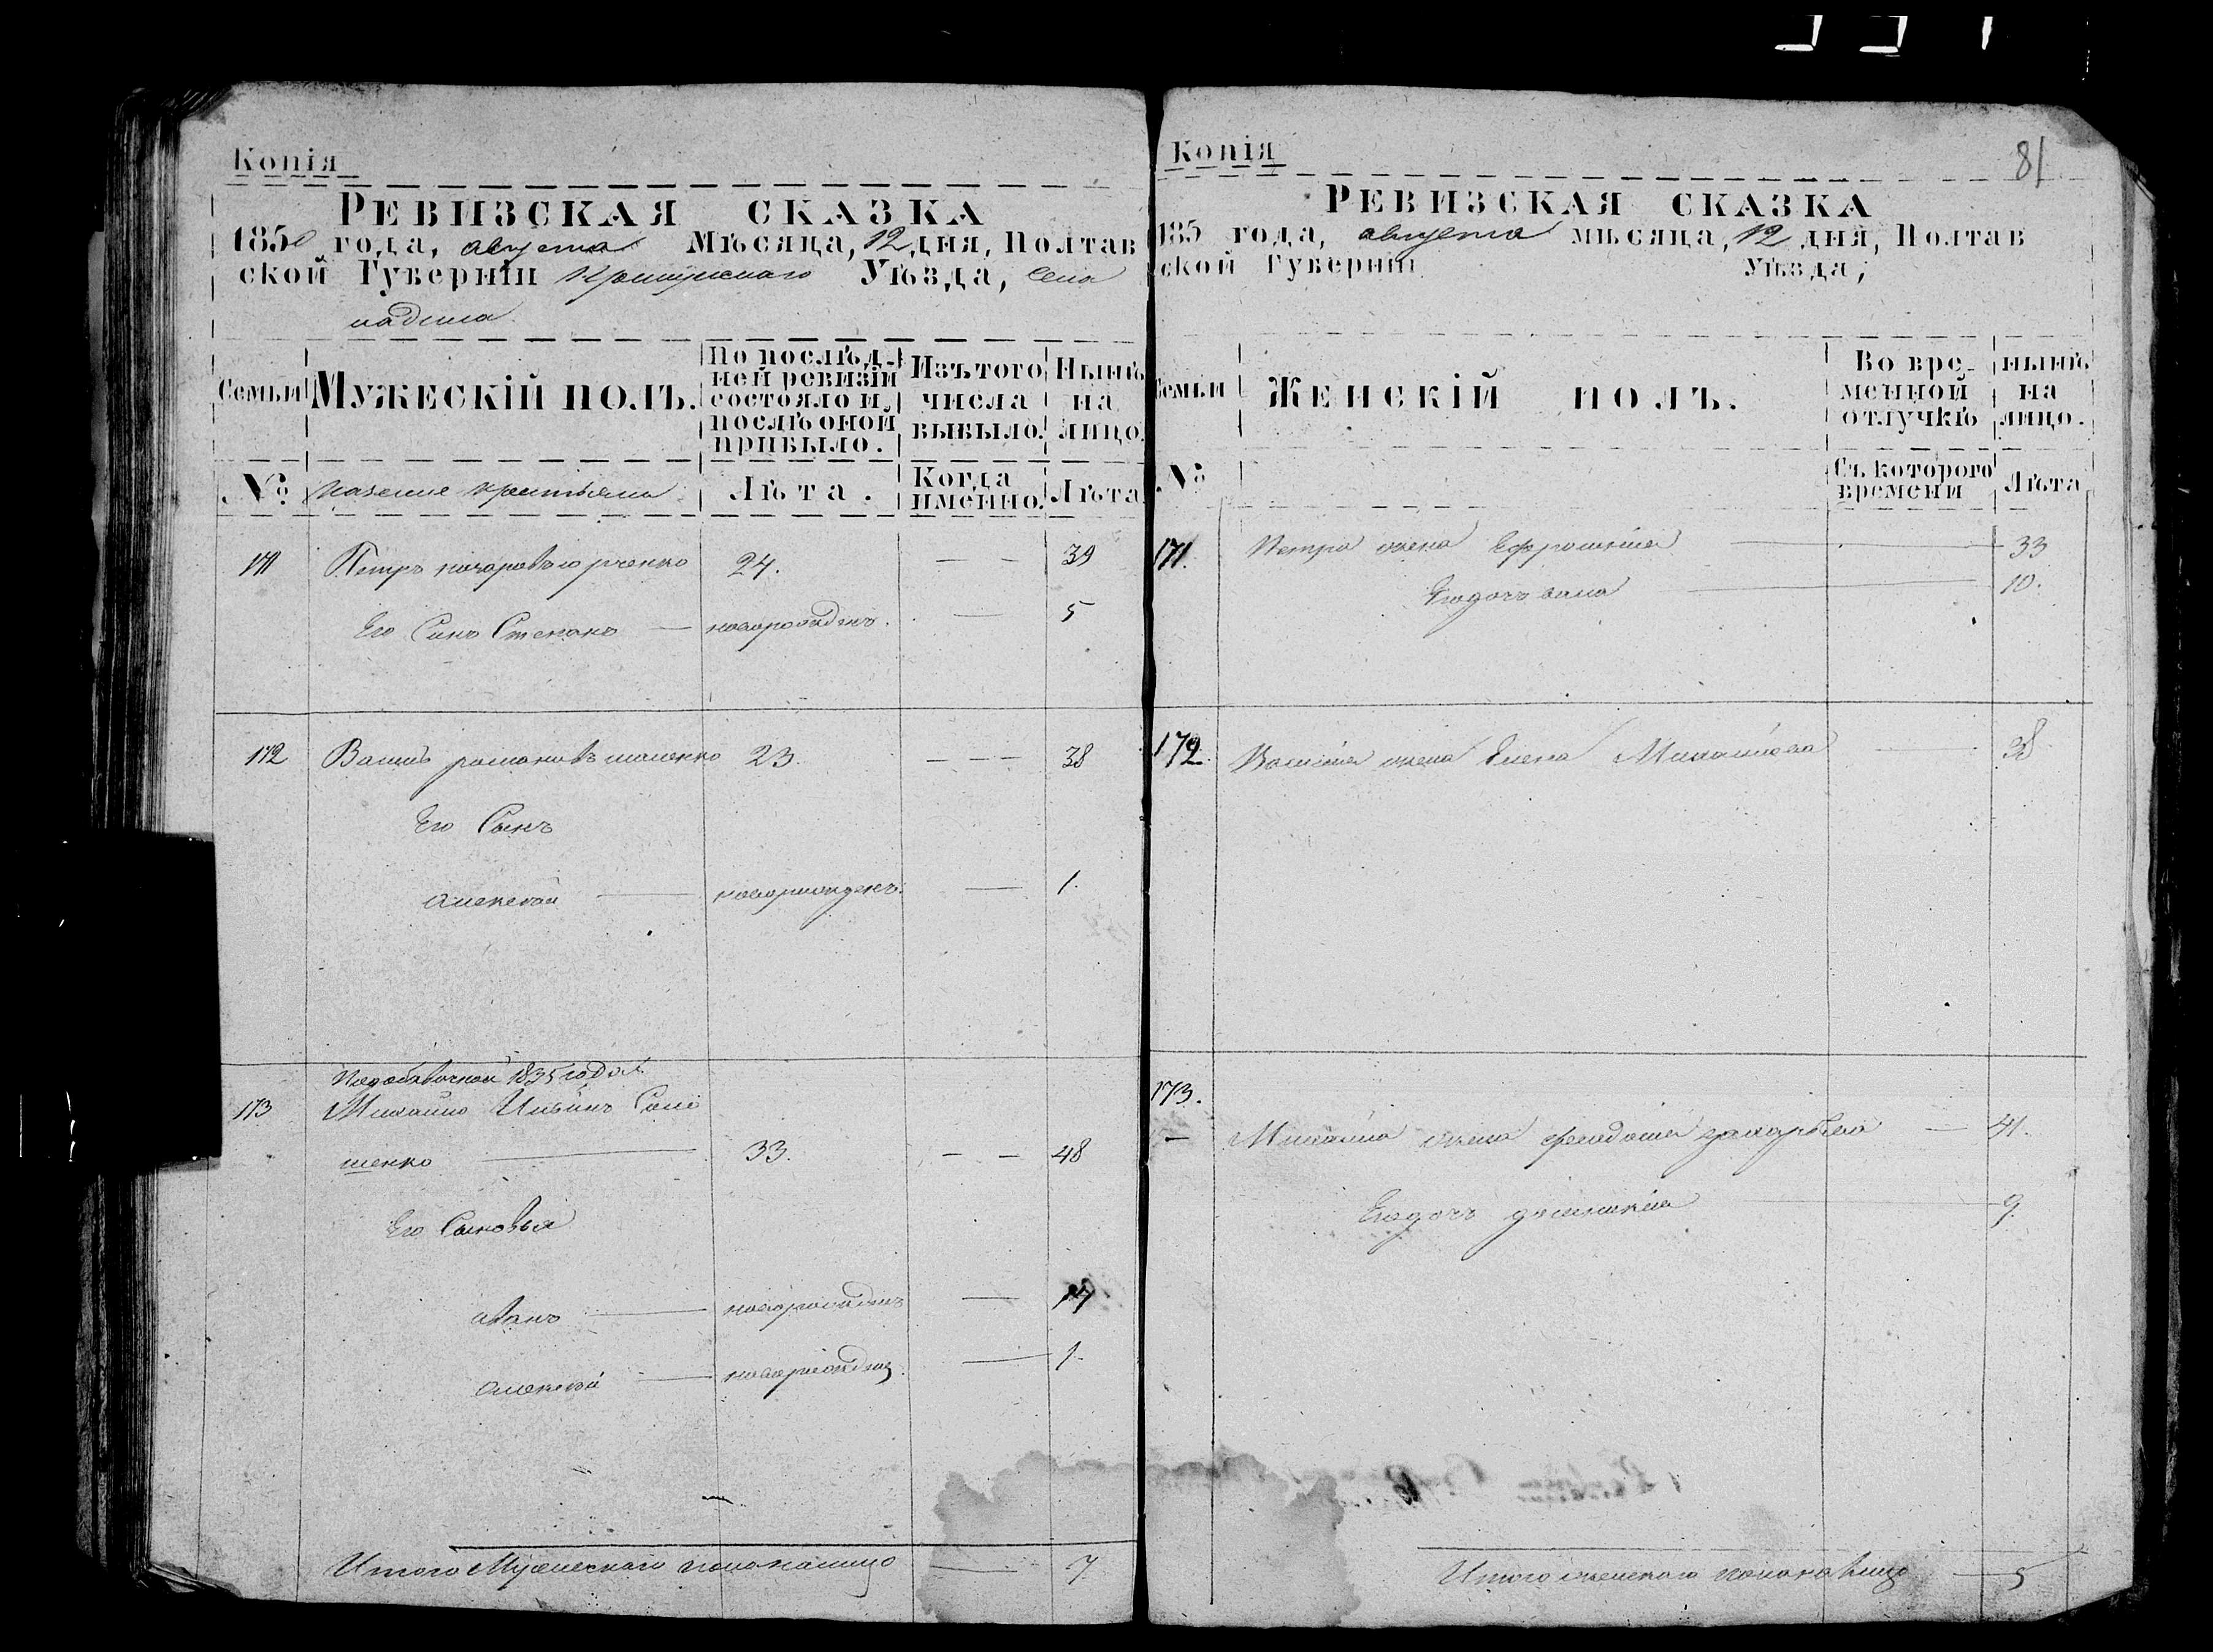 Копія
РЕВИЗСКАЯ СКАЗКА
1850 года, августа Мѣсяца, 12 дня, Полтав
ской Губерніи Уѣзда, Села
Семьи
МУЖЕСКІЙ ПОЛЪ.
По послѣд-
ней ревизіи
состояло и
послѣ оной
прибыло.
Изъ того
числа
выбыло.
Нынѣ
на
лицо.
№
Казенные крестьяне
Лѣта.
Когда
именно.
Лѣта
171 Петръ 24. — — 39
Его Сынъ Степанъ — новорожденъ. — 5
172 23. — — — 38
Его Сынъ
Алексѣй — новорожденъ. — 1.
1835 года
173 Михайло Ильинъ
шенко — 33. — — 48
Его Сыновья
иванъ — новорожденъ —
Алексѣй — новорожден — 1.
Итого Мужескаго пола налицо — 7
Копія
81
РЕВИЗСКАЯ СКАЗКА
185 года, августа мѣсяца, 12 дня, Полтав
ской Губерніи Уѣзда,
Семьи
ЖЕНСКІЙ ПОЛЪ.
Во вре-
менной
отлучкѣ
нынѣ
на
лицо.
№
Съ котораго
времени
Лѣта
171. Петра жена Ефросинія — 33
Его дочь — 10.
172. Василія жена Елена Михайлова — 38
173.
— Михайла жена Феодосія Захарьева — 41.
Его дочь — 9.
Итого женского пола на лицо — 5